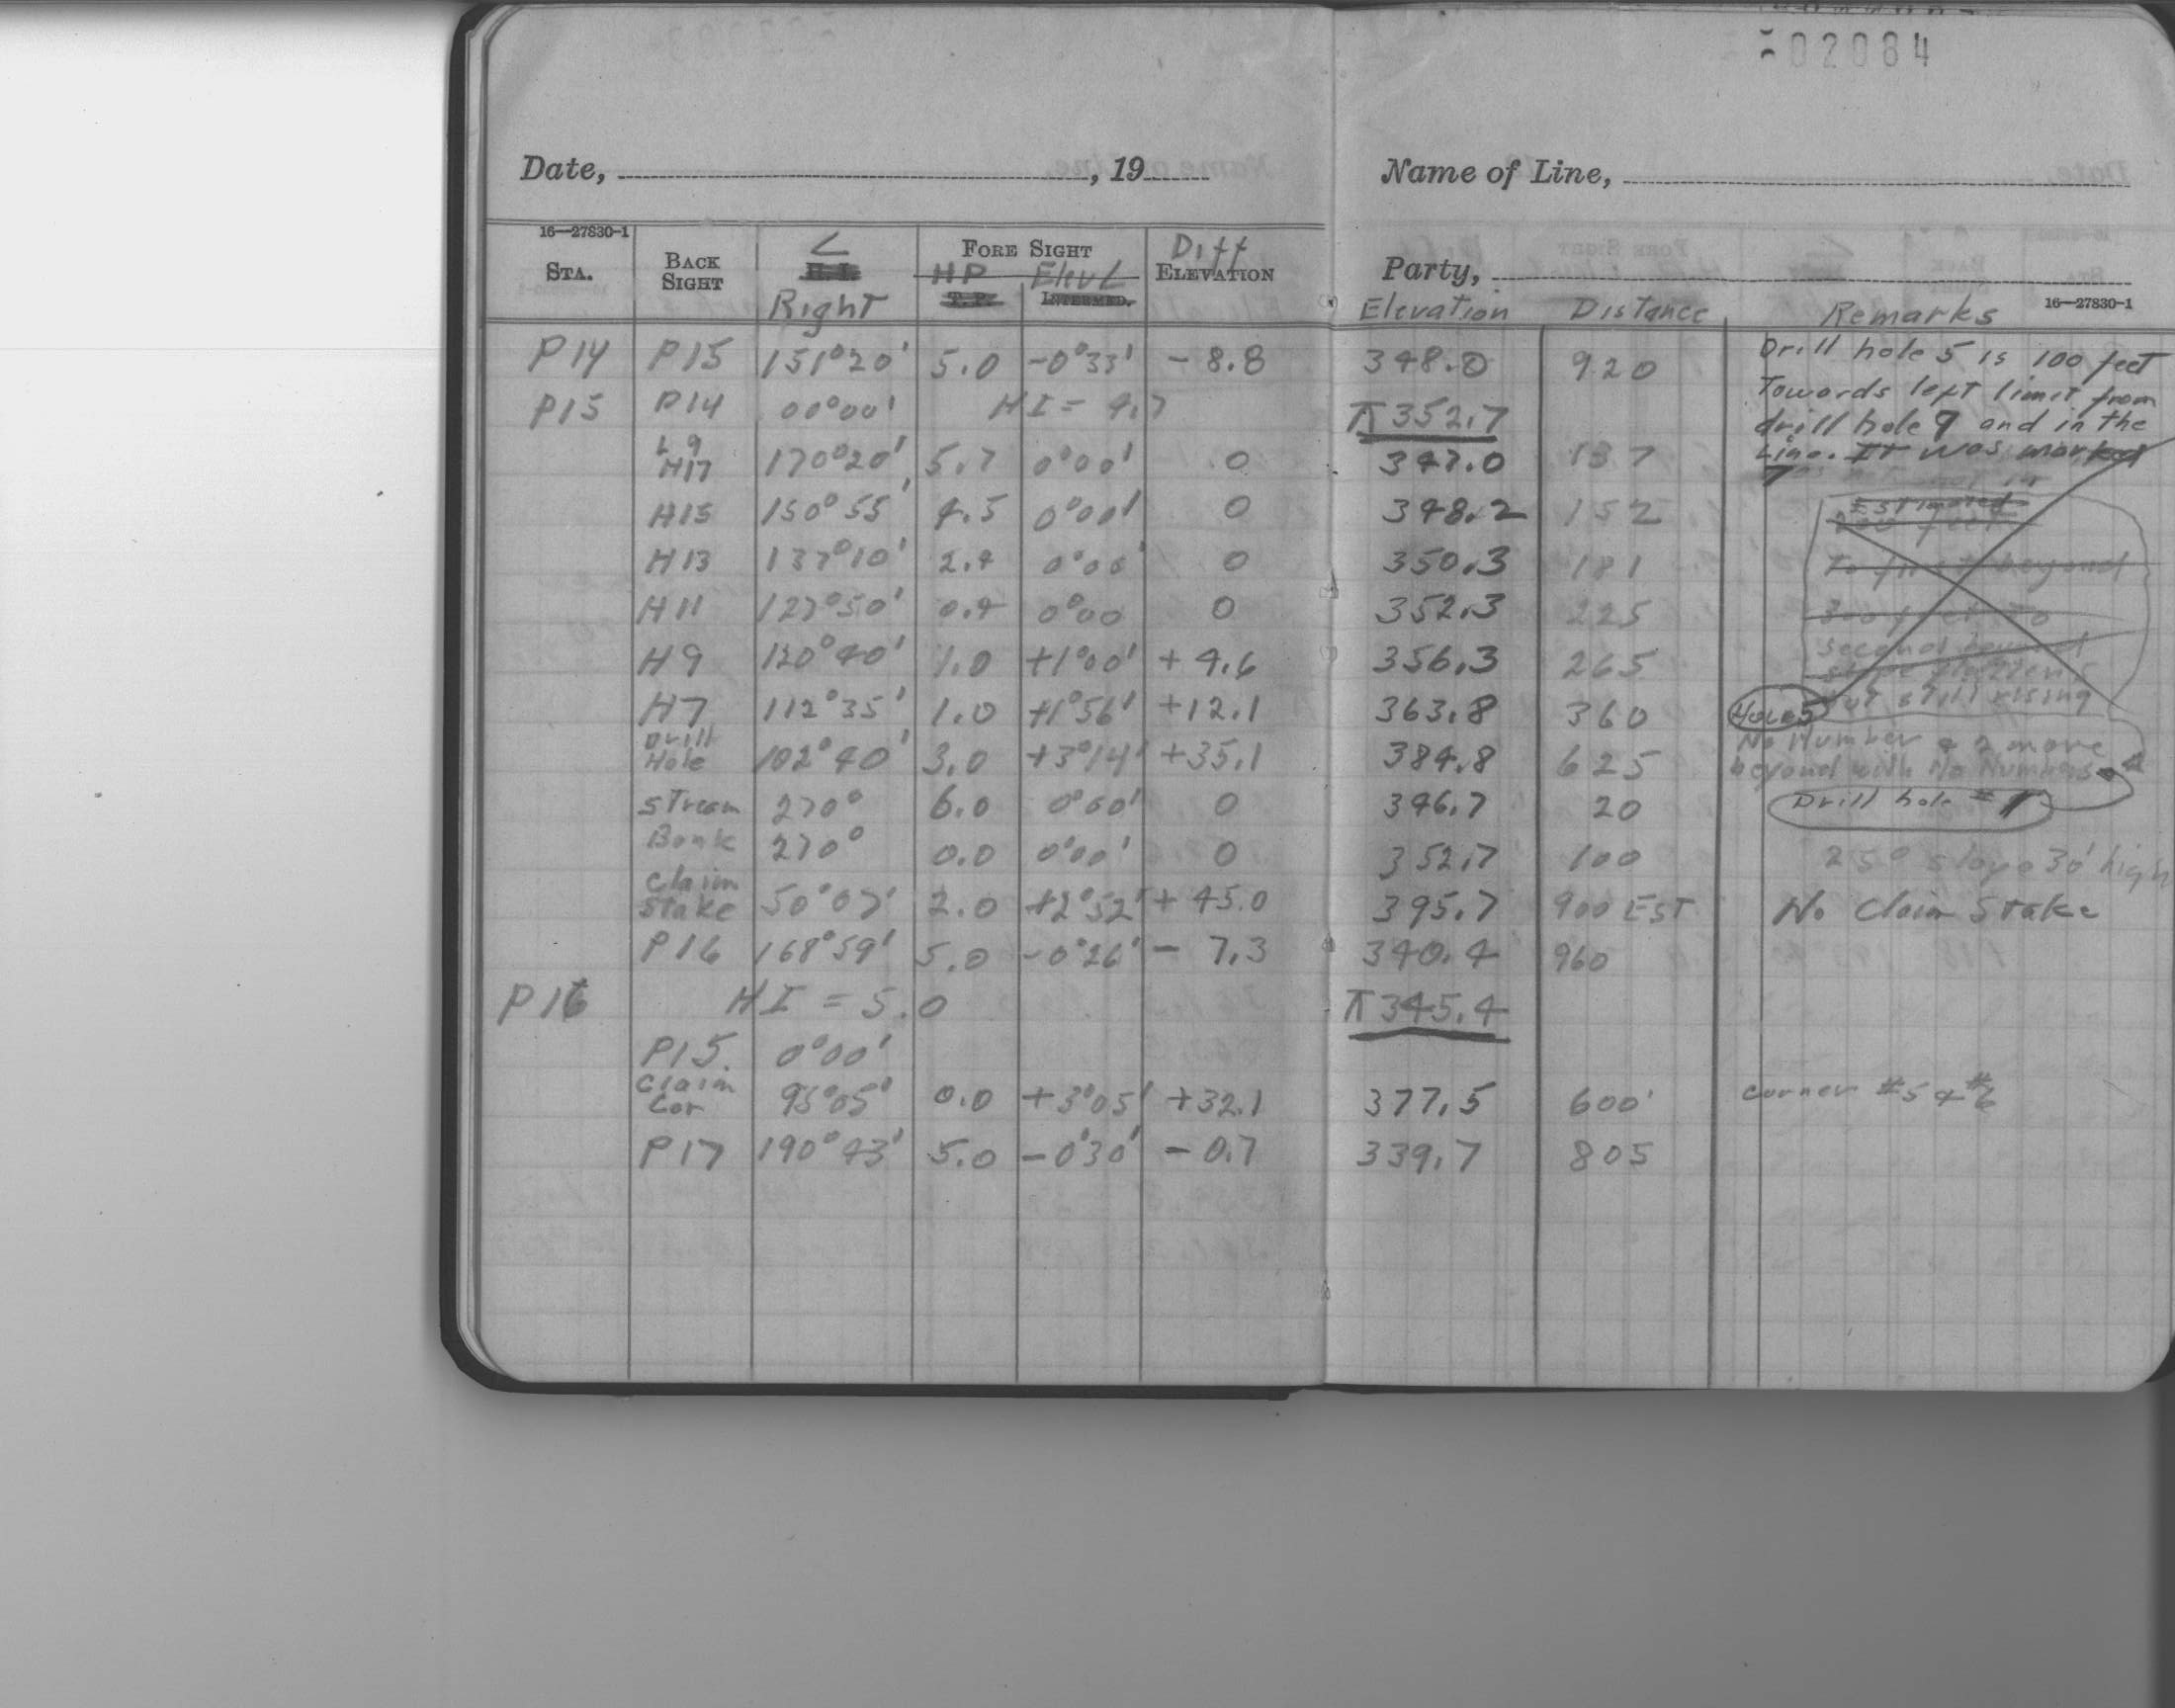 02084
Date, , 19
Name of Line,
16—27830-1
STA. BACK SIGHT ∠ H.I. Right FORE SIGHT HP T.P. Elev ∠ INTERMED. Diff ELEVATION
Party,
Elevation Distance Remarks 16—27830-1
P14 P15 151°20' 5.0 -0°33' - 8.8 348.0 920 Drill hole 5 is 100 feet
Towards left limit from
P15 P14 00°00' HI = 4.7 ⊼ 352.7 drill hole 7 and in the
L9 H17 170°20' 5.7 0°00' 0 347.0 137 Line. It was marked
7
H15 150°55' 4.5 0°00' 0 348.2 152 Estimated
H13 137°10' 2.4 0°00' 0 350.3 181 To first beyond
H11 127°50' 0.4 0°00 0 352.3 225 300 feet To
H9 120°40' 1.0 +1°00' + 4.6 356.3 265 second beyond
H7 112°35' 1.0 +1°56' +12.1 363.8 360 Hole 5 but still rising
Drill Hole 102°40' 3.0 +3°14' +35.1 384.8 625 No Number & 2 more
beyond with No Numbers
Stream 270° 6.0 0°00' 0 346.7 20 Drill hole # 7
Bank 270° 0.0 0°00' 0 352.7 100 25° slope 30' high
Claim Stake 50°07' 2.0 +2°52' + 45.0 395.7 900 EST No Claim Stake
P16 168°59' 5.0 -0°26' - 7.3 340.4 960
P16 HI = 5.0 ⊼ 345.4
P15. 0°00'
Claim Cor 95°05' 0.0 +3°05' +32.1 377.5 600' corner #5 & #6
P17 190°43' 5.0 -0°30' - 0.7 339.7 805